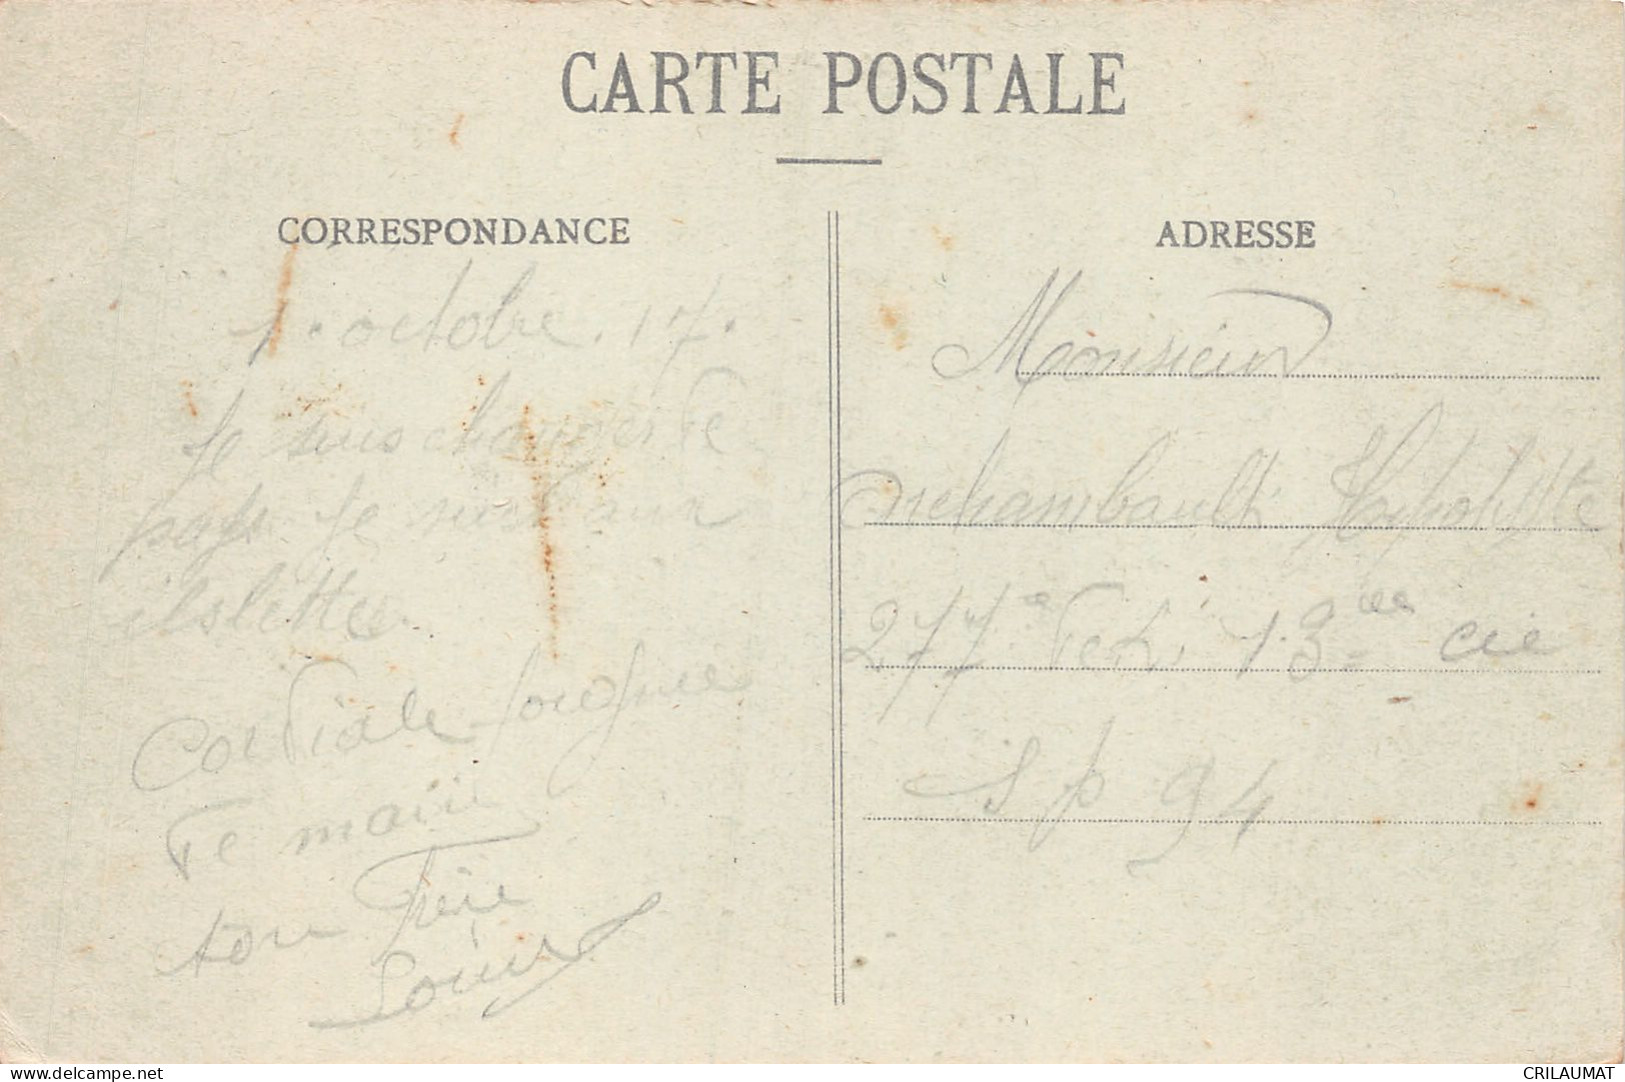 CARTE POSTALE
CORRESPONDANCE
1. octobre. 17.
Je suis changer de
pays Je suis aux
ilslette.
Cordiale poignee
de main
ton frère
Louis
ADRESSE
Monsieur
Archambault Hypolitte
277e 13ème cie
S p 94
delcampe.net
CRILAUMAT